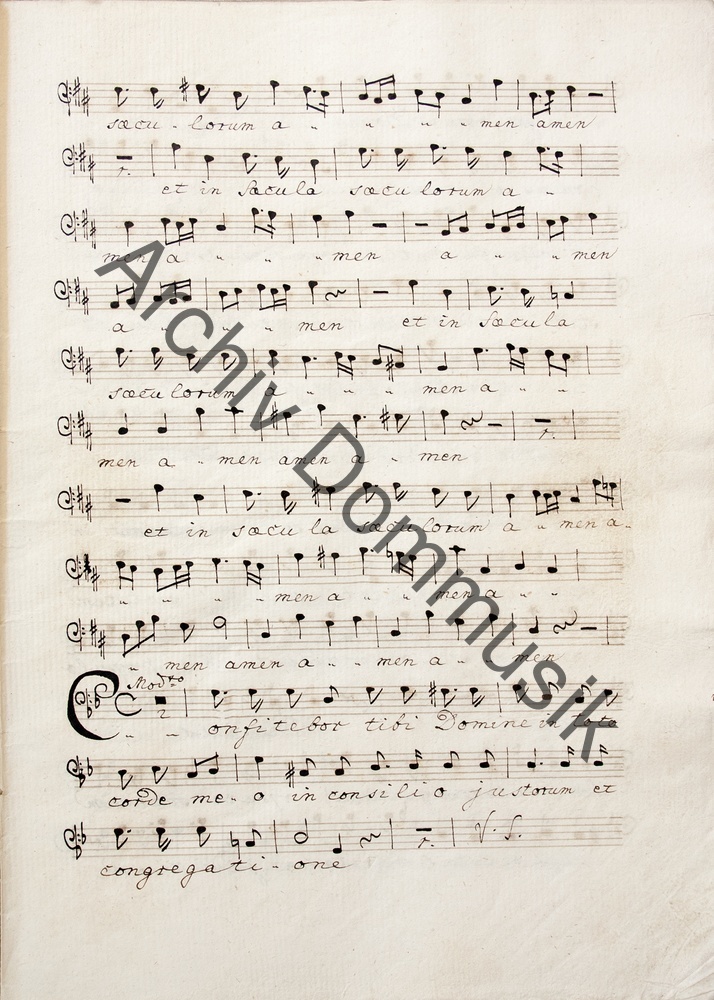 sæcu - lorum a " " " " men amen
et in Sæcula sæcu lorum a -
men a " " " men a " " men
a " " " " men et in Sæcula
sæcu lorum a " " " " men a " "
men a " men amen a " men
et in sæcu la sæcu lorum a " men a "
" " " " men a " " " men a " "
" men amen a " " men a " " men
Mod.to
2
" " onfitebor tibi Domine in toto
corde me " o in consilio justorum et
V. S.
congregati - one
Archiv Dommusik